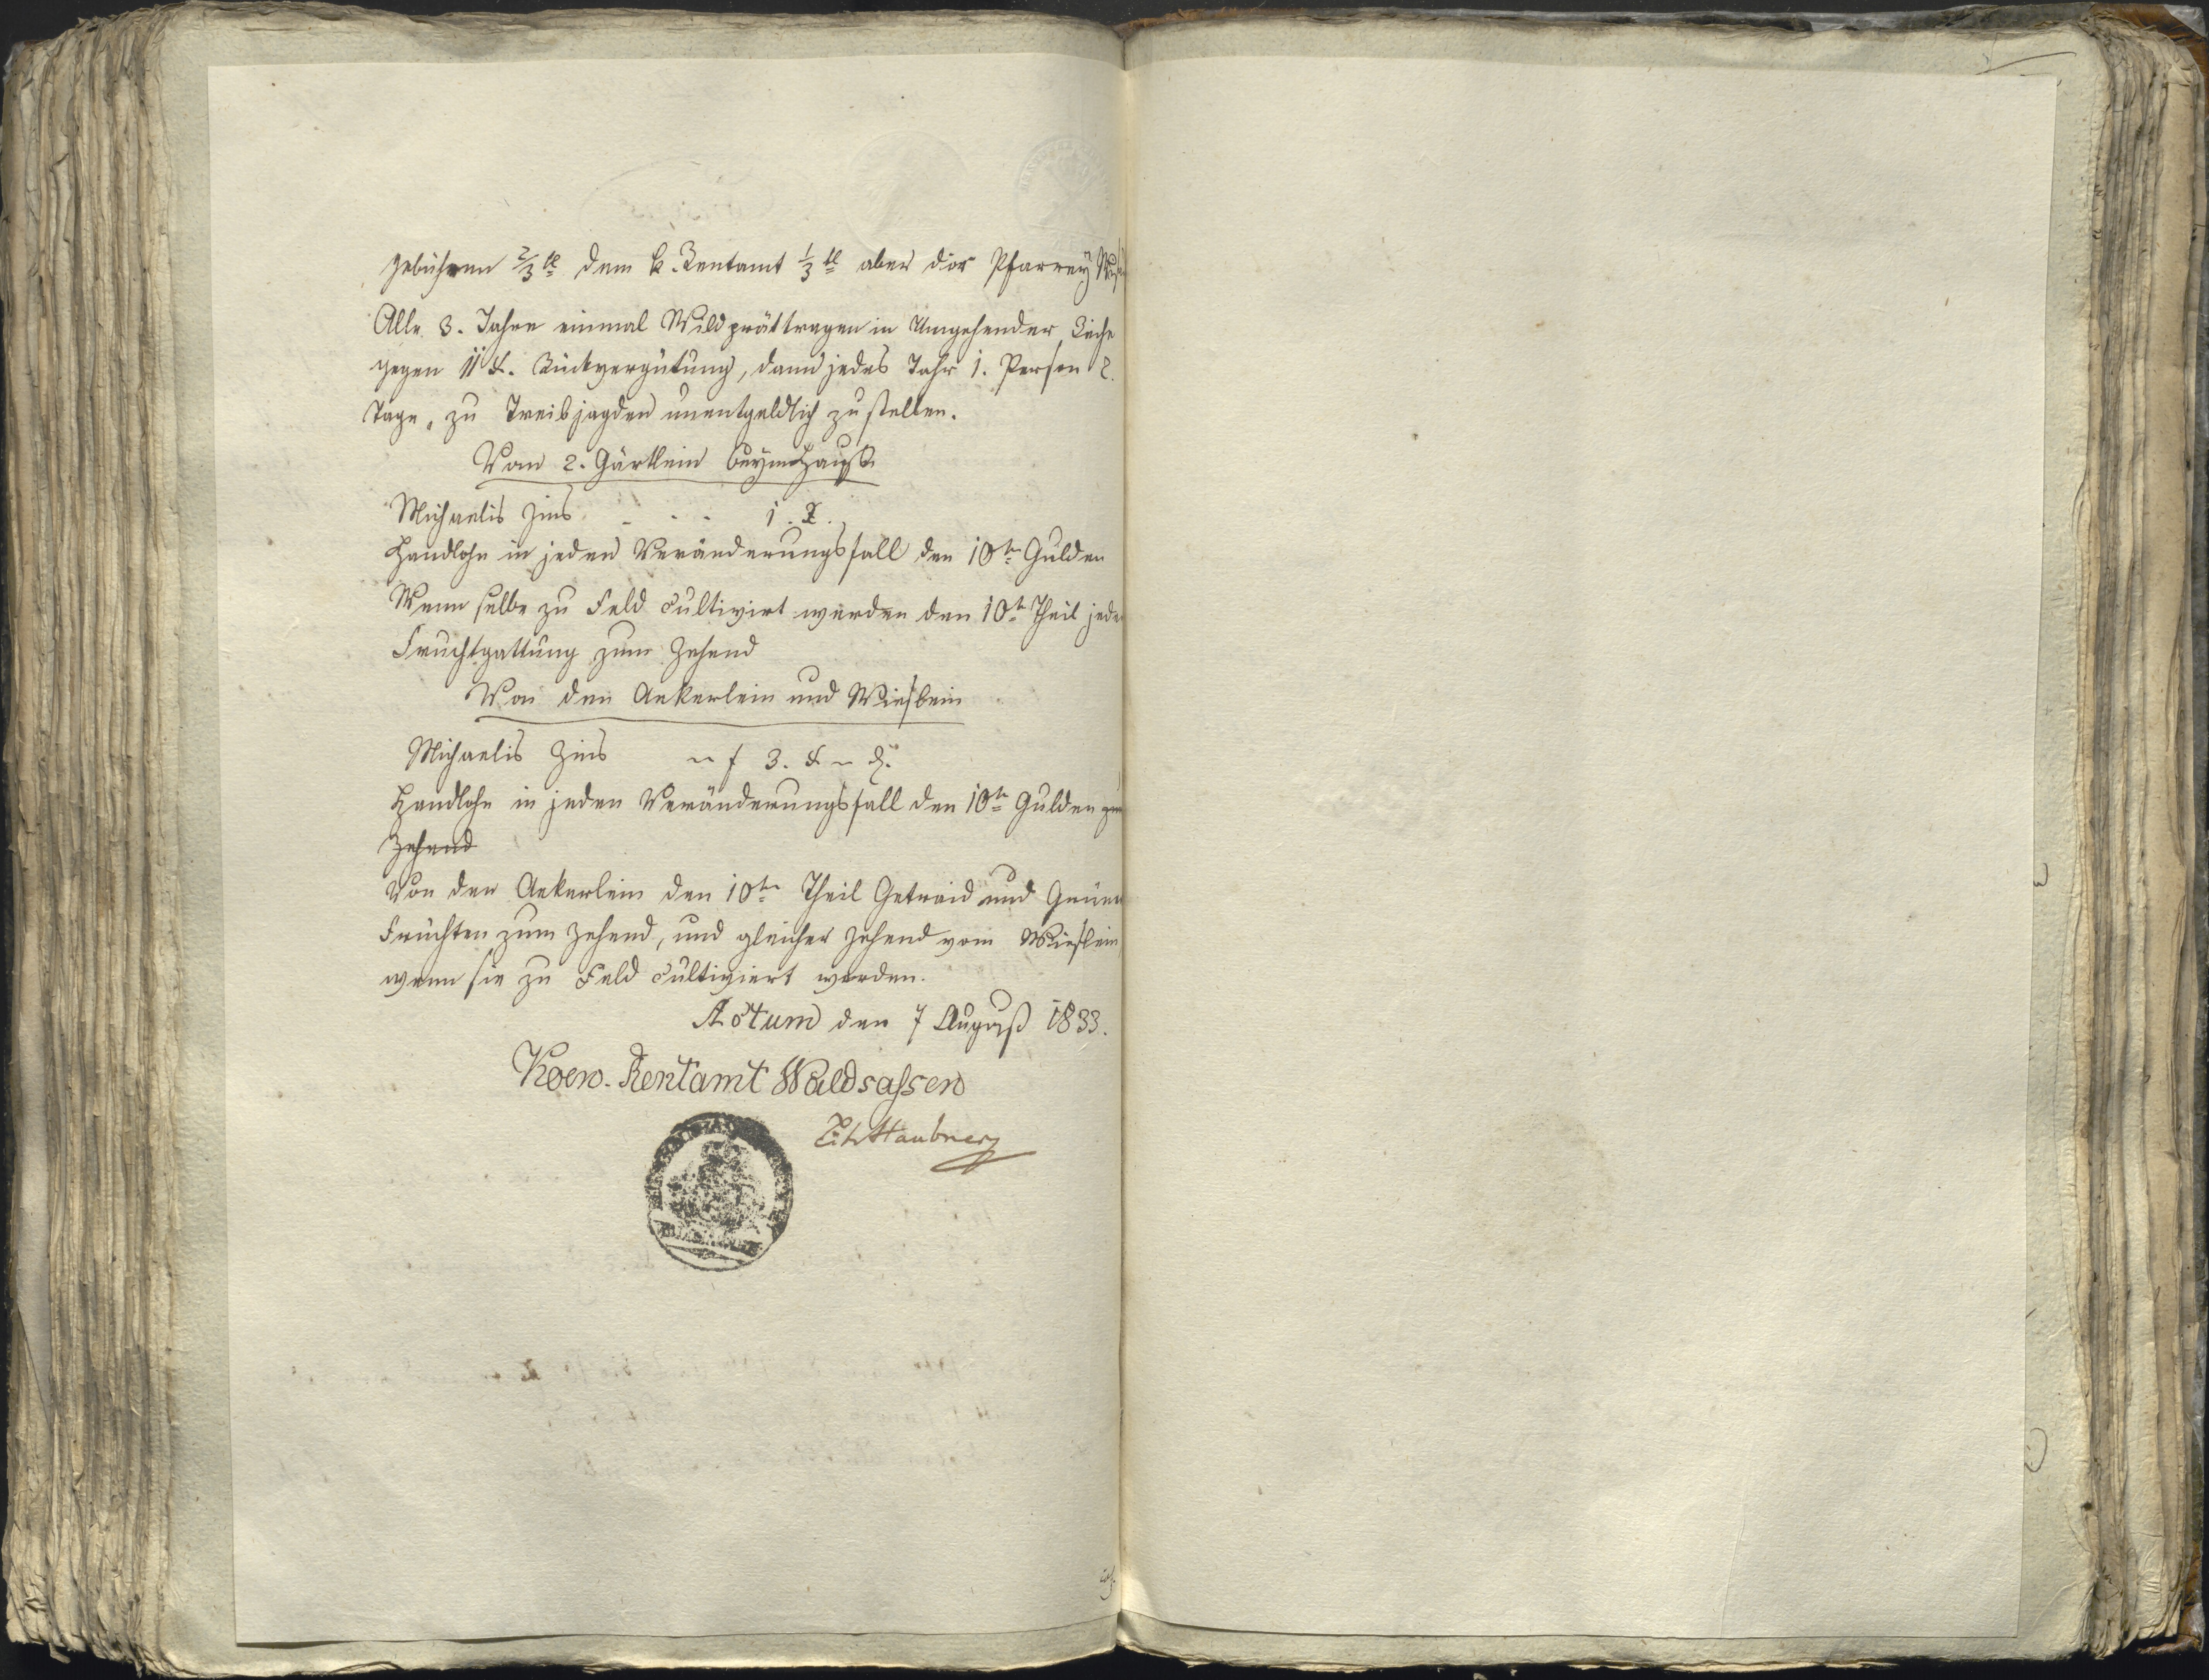 gebühren 2/3 tl dem k. Rentamt 1/3 tl aber der Pfarrey
Alle 3. Jahre einmal Wildprättragen in Umgehender Reihe
gegen 11 x. Rückvergütung, dann jedes Jahr 1. Person 2.
Tage, zu Treibjagden unentgeldlich zu stellen.
Von 2. Gärtlein beym Hauße
Michaelis Zins - - - 1. x.
Handlohn in jeden Veränderungsfall den 10tn Gulden
Wenn selbe zu Feld cultivirt werden den 10tn Theil jeder
Fruchtgattung zum Zehend
Von den Aekerlein und Wieslein
Michaelis Zins " f 3. x " d.
Handlohn in jeden Veränderungsfall den 10tn Gulden zum
Zehend
Von den Aekerlein den 10tn Theil Getraid und Grünen
Früchten zum Zehend, und gleicher Zehend vom Wieslein,
wenn sie zu Feld cultiviert werden.
Actum den 7 August 1833.
Koen. Rentamt Waldsassen
Haubner